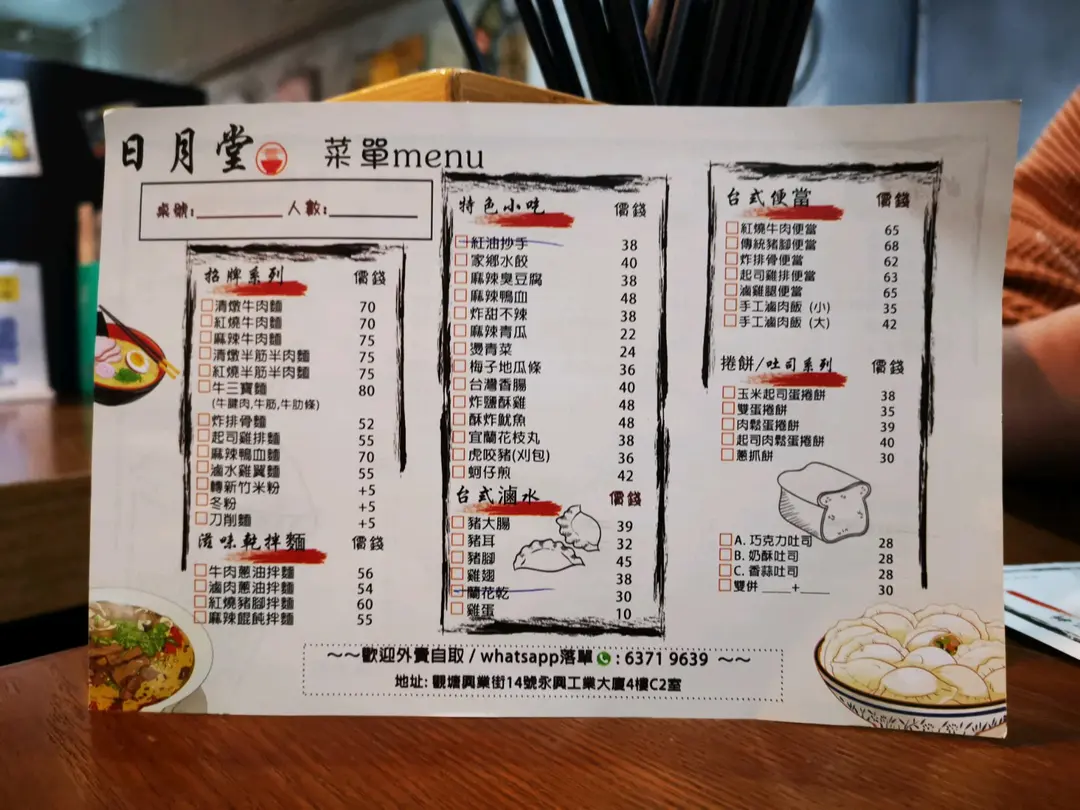 日月堂
菜單menu
桌號:________ 人數:________
招牌系列 價錢
清燉牛肉麵 70
紅燒牛肉麵 70
麻辣牛肉麵 75
清燉半筋半肉麵 75
紅燒半筋半肉麵 75
牛三寶麵 80
(牛腱肉,牛筋,牛肋條)
炸排骨麵 52
起司雞排麵 55
麻辣鴨血麵 70
滷水雞翼麵 55
轉新竹米粉 +5
冬粉 +5
刀削麵 +5
滋味乾拌麵 價錢
牛肉蔥油拌麵 56
滷肉蔥油拌麵 54
紅燒豬腳拌麵 60
麻辣餛飩拌麵 55
特色小吃 價錢
紅油抄手 38
家鄉水餃 40
麻辣臭豆腐 38
麻辣鴨血 48
炸甜不辣 38
麻辣青瓜 22
燙青菜 24
梅子地瓜條 36
台灣香腸 40
炸鹽酥雞 48
酥炸魷魚 48
宜蘭花枝丸 38
虎咬豬(刈包) 36
蚵仔煎 42
台式滷水 價錢
豬大腸 39
豬耳 32
豬腳 45
雞翅 38
蘭花乾 30
雞蛋 10
台式便當 價錢
紅燒牛肉便當 65
傳統豬腳便當 68
炸排骨便當 62
起司雞排便當 63
滷雞腿便當 65
手工滷肉飯 (小) 35
手工滷肉飯 (大) 42
捲餅/吐司系列 價錢
玉米起司蛋捲餅 38
雙蛋捲餅 35
肉鬆蛋捲餅 39
起司肉鬆蛋捲餅 40
蔥抓餅 30
A. 巧克力吐司 28
B. 奶酥吐司 28
C. 香蒜吐司 28
雙併 ____+____ 30
~~歡迎外賣自取 / whatsapp落單 : 6371 9639 ~~
地址: 觀塘興業街14號永興工業大廈4樓C2室